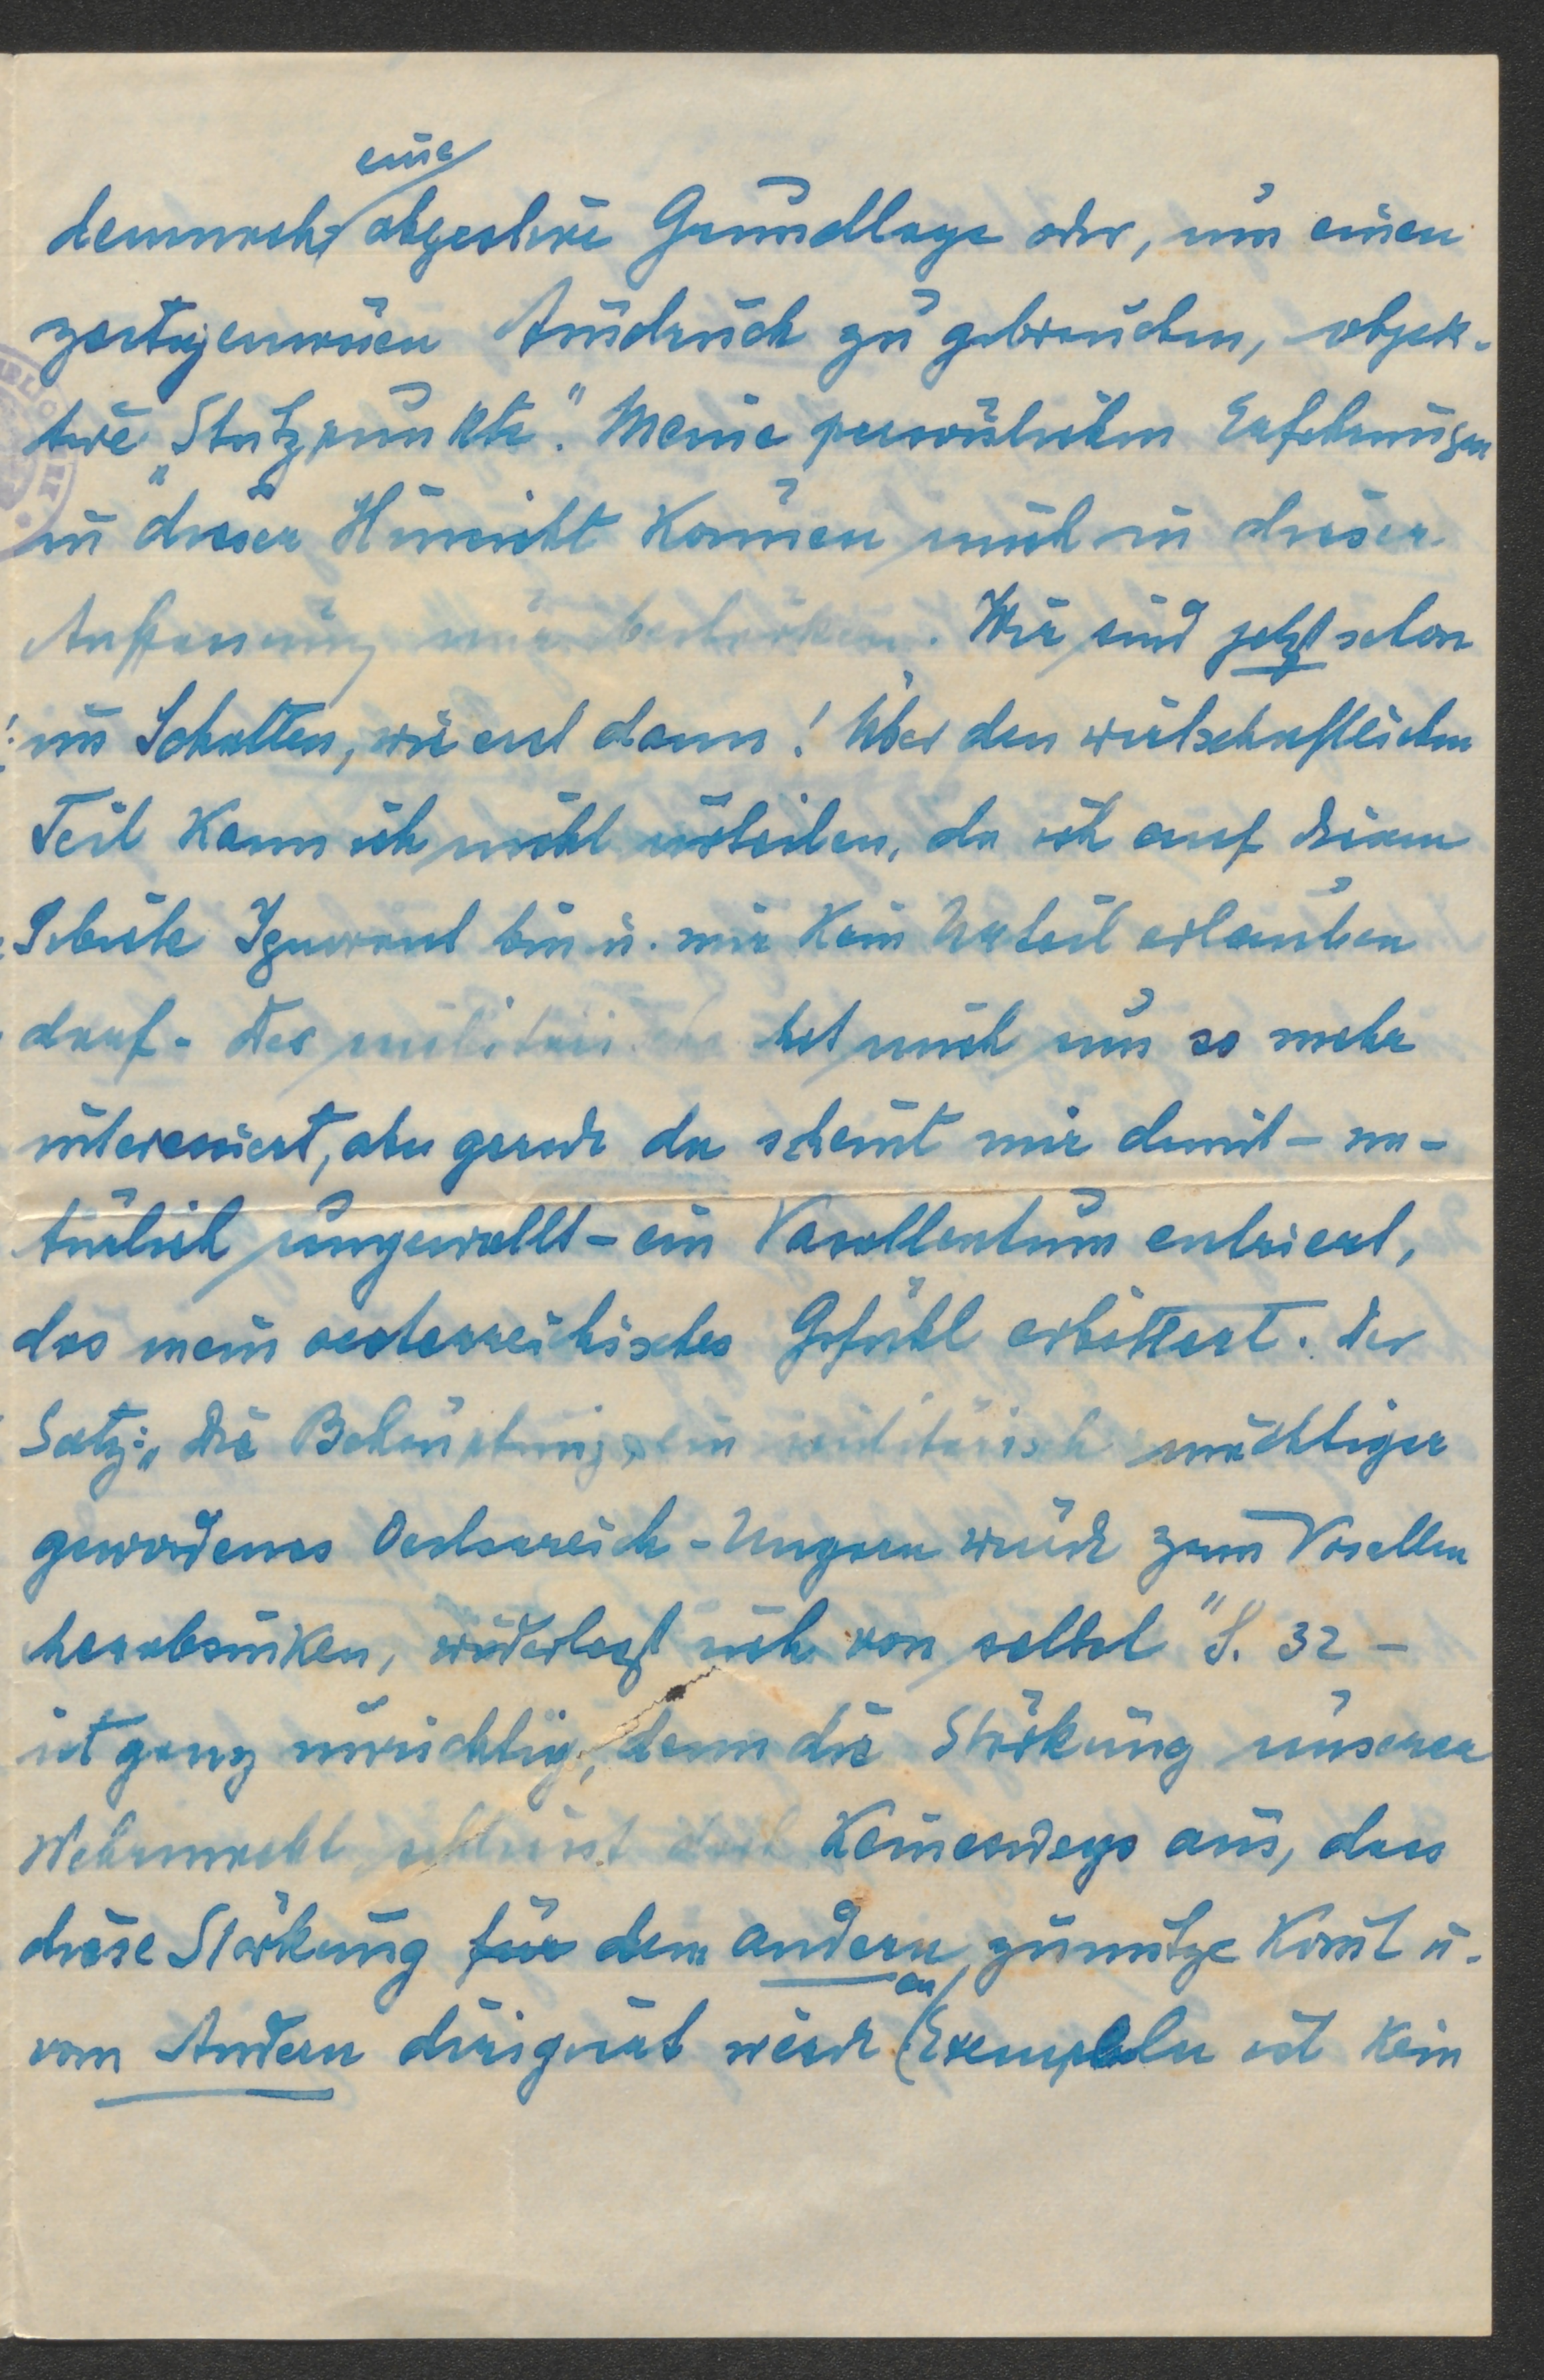 eine
demnach objektive Grundlage oder, um einen
zeitgemässen Ausdruck zu gebrauchen, objek-
tive „Stutzpunkte". Meine persönlichen Erfahrungen
in dieser Hinsicht Können mich in dieser
Auffassung nur bestärken. Wir sind jetzt schon
im Schatten, wie erst dann! Über den wirtschaftlichen
Teil Kann ich nicht urteilen, da ich auf diesem
Gebiete Ignorant bin u. mir Kein Urteil erlauben
darf. Der militärische hat mich um so mehr
interessiert, aber gerade da scheint mir damit - na-
türlich ungewollt - ein Vasallentum entriert,
das mein oesterreichisches Gefühl erbittert. Der
Satz: „Die Behauptung, ein militärisch mächtiger
gewordenes Oesterreich-Ungarn würde zum Vasallen
herabsinken, widerlegt sich von selbst" S. 32 -
ist ganz unrichtig, denn die Stärkung unserer
Wehrmacht schliesst doch Keineswegs aus, dass
diese Stärkung für dem andern zunutze Komt u.
vom Andern dirigiert werde (Exempeln ist Kein
en